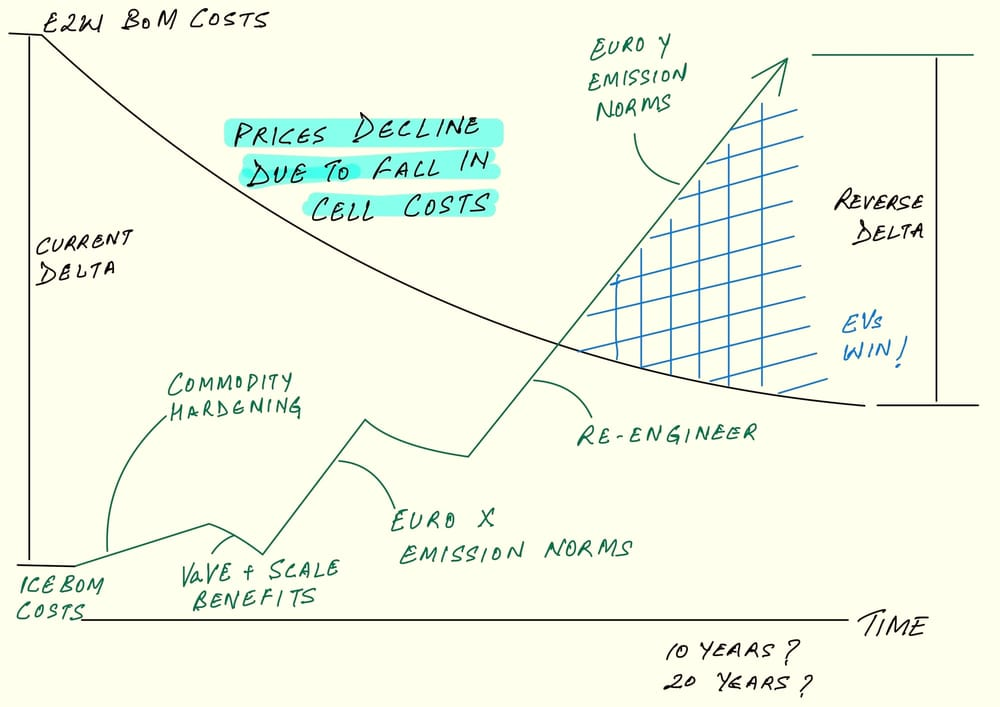 E2W BOM COSTS
PRICES DECLINE
DUE TO FALL IN
CELL COSTS
EURO Y
EMISSION
NORMS
CURRENT
DELTA
REVERSE
DELTA
EVs
WIN!
COMMODITY
HARDENING
RE-ENGINEER
EURO X
EMISSION NORMS
VAVE + SCALE
BENEFITS
ICE BOM
COSTS
TIME
10 YEARS?
20 YEARS?